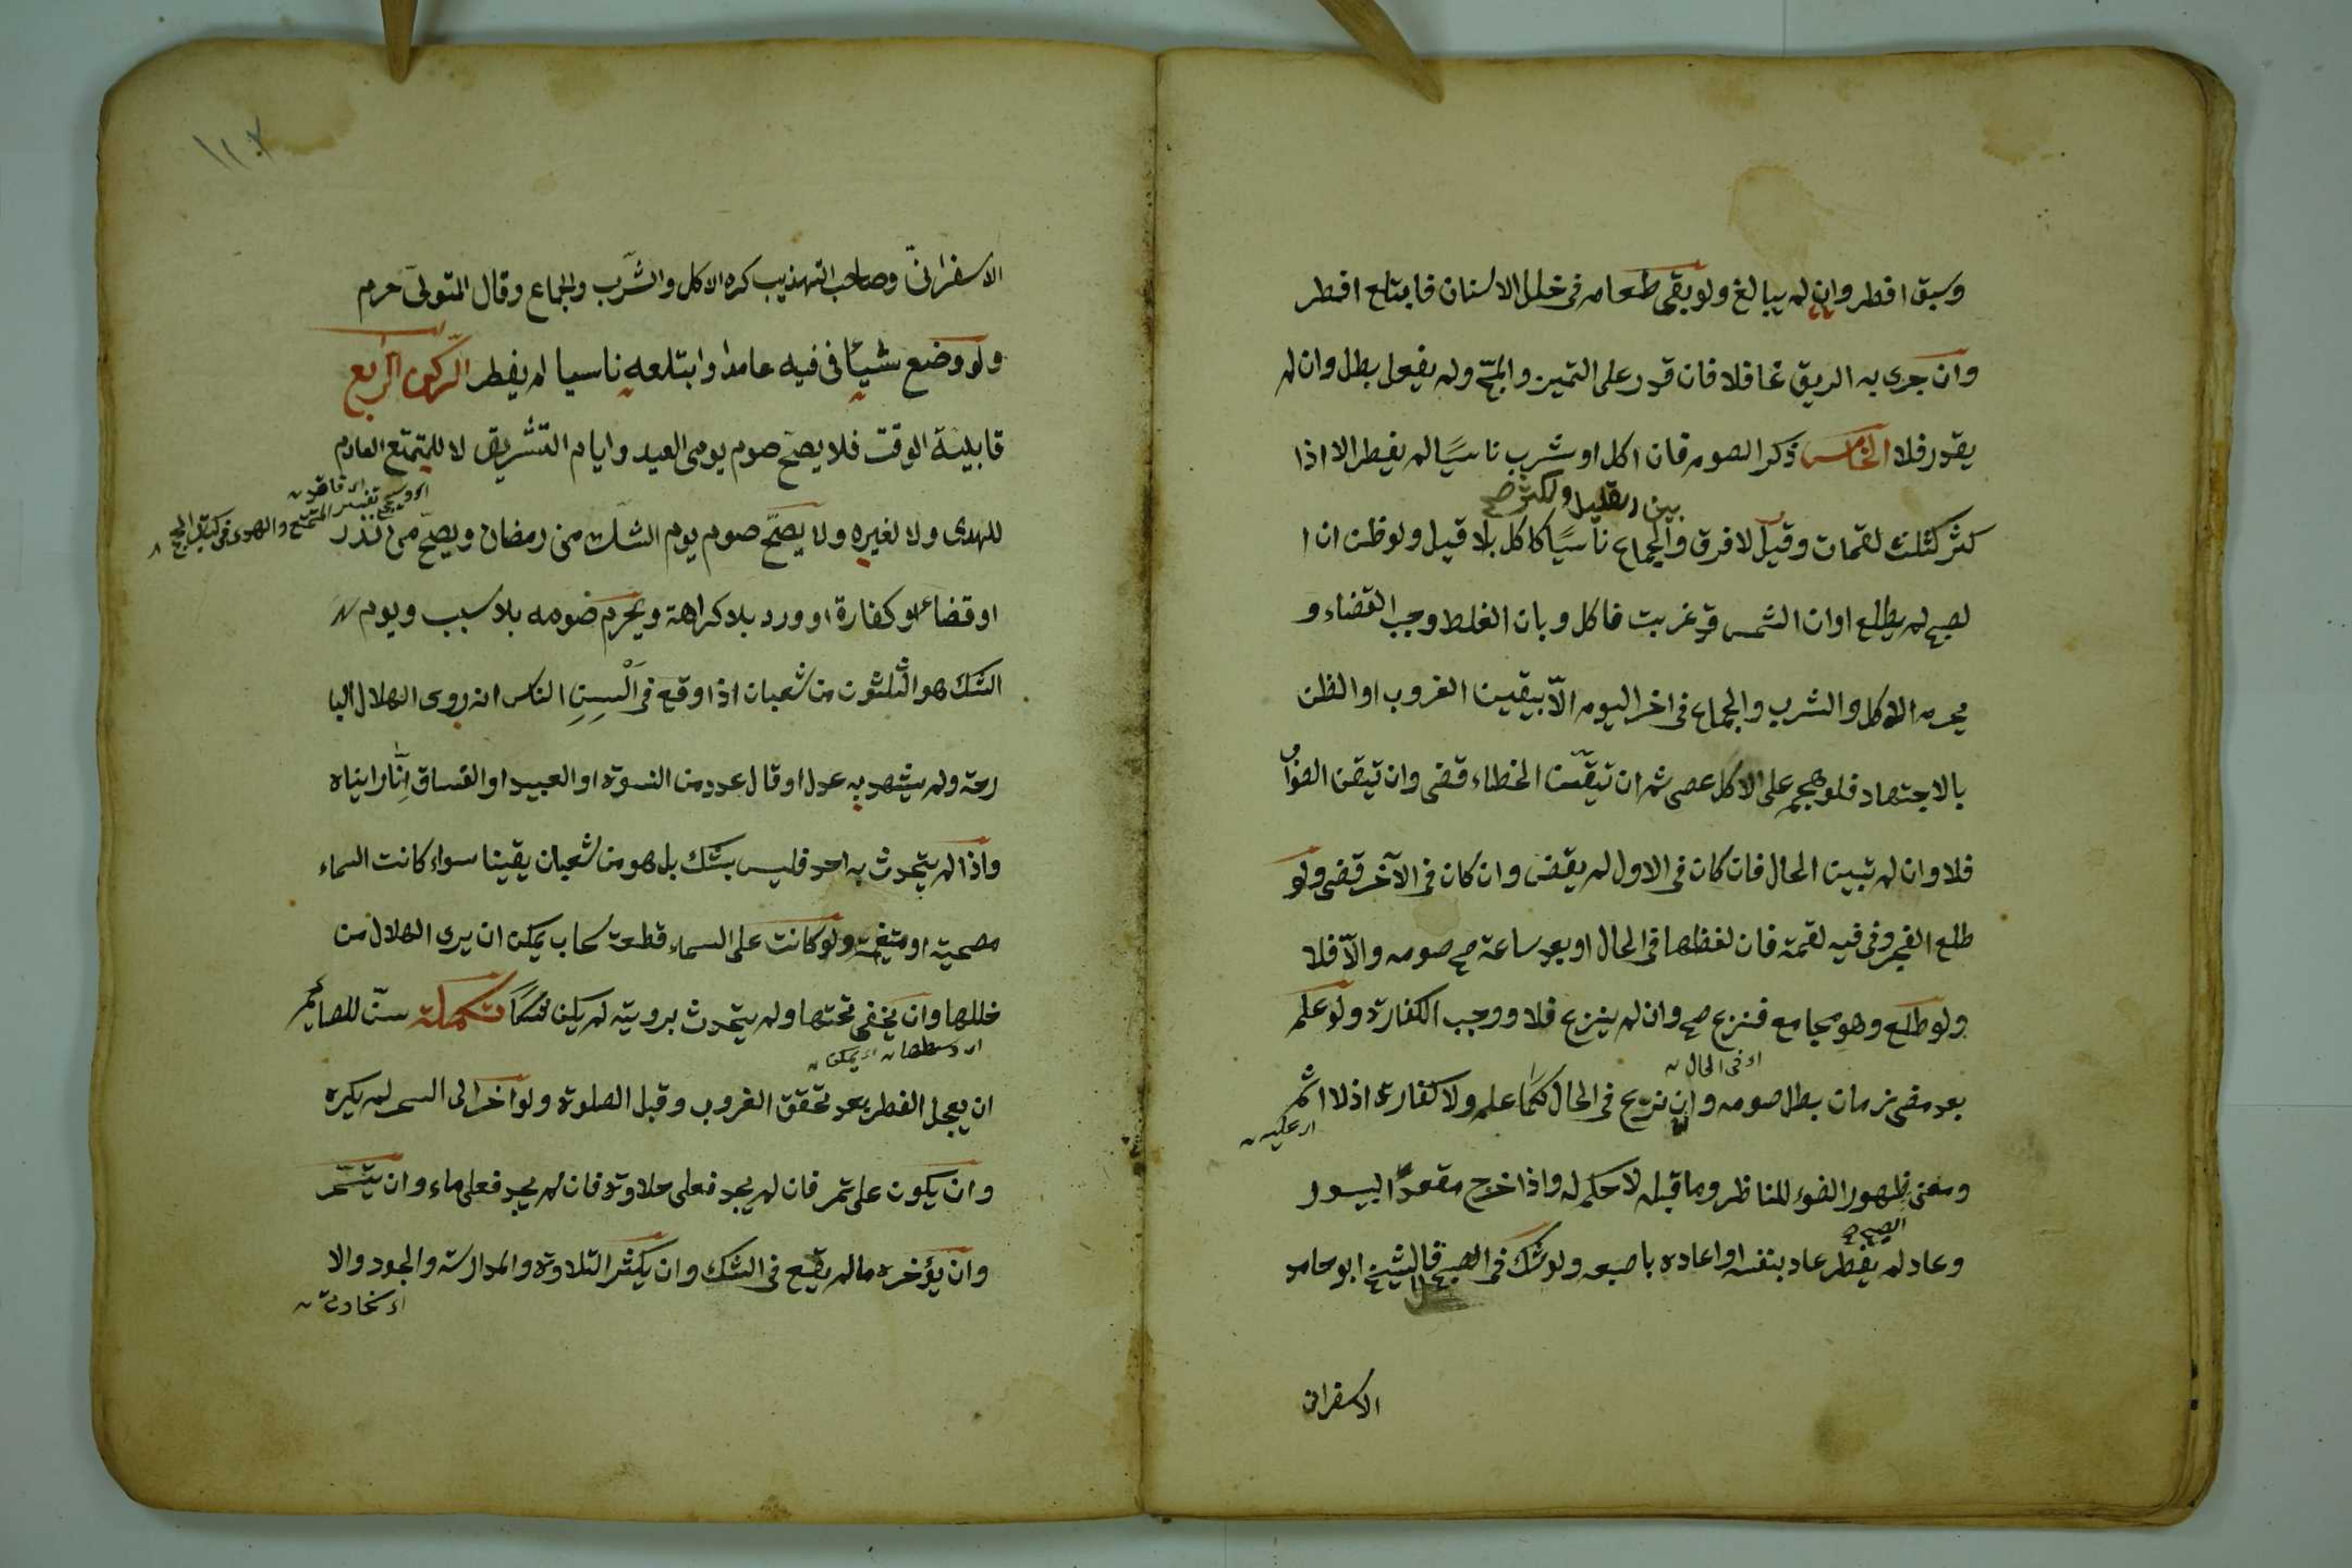 وسبق افطر وان لم يبالغ ولو بقى طعامه فى خلل الاسنان فابتلع افطر
وان جرى به الريق غافلا فان قدر على التميز والمجّ ولم يفعل بطل وان لم
يقدر فلا الخامس ذكر الصوم فان اكل او شرب ناسيًا لم يفطر الا اذا
بين القليل والكثير صح
كثر كثلث لقمات وقيل لا فرق والجماع ناسيًا كاكل بلا قيل ولو ظن ان ا
لصبح لم يطلع او ان الشمس قد غربت فاكل وبان الغلط وجب القضاء و
يحرم الاكل والشرب والجماع فى اخر اليوم الاّ بيقين الغروب او الظن
بالاجتهاد فلو هجم على الاكل عصى ثم ان تيقّن الخطاء قضى وان تيقن الصواب
فلا وان لم تبين الحال فان كان فى الاول لم يقض وان كان فى الآخر قضى ولو
طلع الفجر وفى فيه لقمة فان لفظها فى الحال او بعد ساعة صح صومه والاّ فلا
ولو طلع وهو مجامع فنزع صح وان لم ينزع فلا ووجب الكفارة ولو علم
اى فى الحال
بعد مضى زمان بطل صومه وان نزع فى الحال كما علم ولا كفارة اذ لا اثم
اى عليه
ومعنى ظهور الضوء للمناظر وما قبله لا حكم له واذا خرج مقعد البيسور
الصبح
وعاد لم يفطر عاد بنفسه او اعاده باصبعه ولو شك فى الصبح قال الشيخ ابو حامد
الاسفرانى
١١٢
الاسفرانىّ وصاحب التهذيب كره الاكل والشرب والجماع وقال المتولى حرم
ولو وضع شيئا فى فيه عامدا وابتلعه ناسيا لم يفطر الركن الرابع
قابلية الوقت فلا يصح صوم يومى العيد وايام التشريق لا للمتمتع العادم
اى فاقد
للهدى ولا لغيره ولا يصحّ صوم يوم الشك من رمضان ويصحّ من نذر
تفسير المتمتع والهدى فى كتاب الحج
او قضاء او كفارة او ورد بلا كراهة ويحرم صومه بلا سبب ويوم
الشك هو الثلثون من شعبان اذا وقع فى السن الناس انه روى الهلال البا
رحة ولم يشهد به عدل او قال عدد من النسوة او العبيد او الفساق انّا رايناه
واذا لم يتحدث به احد فليس بشك بل هو من شعبان يقينا سواء كانت السماء
مصحية او متغيمة ولو كانت على السماء قطعة سحاب يمكن ان يرى الهلال من
خللها وان يخفى تحتها ولم يتحدث برويته لم يكن شكا تكملة سنّ للصائم
اى وسطها اى يمكن
ان يعجل الفطر بعد تحقق الغروب وقبل الصلوة ولو اخر الى السحر لم يكره
وان يكون على تمر فان لم يجد فعلى حلاوة فان لم يجد فعلى ماء وان يتسحّر
وان يؤخره ما لم يقع فى الشك وان يكثر التلاوة والمدارسة والجود والا
اى سخاوة